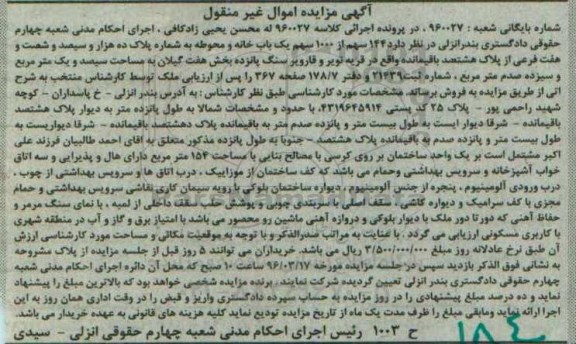 آگهی مزایده اموال غیر منقول
شماره بایگانی شعبه : ۹۶۰۰۲۷ ، در پرونده اجرائی کلاسه ۹۶۰۰۲۷ له محسن یحیی زادکافی ، اجرای احکام مدنی شعبه چهارم
حقوقی دادگستری بندرانزلی در نظر دارد ۱۴۴ سهم از ۱۰۰۰ سهم یک باب خانه و محوطه به شماره پلاک ده هزار و سیصد و شصت و
هفت فرعی از پلاک هشتصد باقیمانده واقع در قریه تویر و قارویر سنگ پانزده بخش هفت گیلان به مساحت سیصد و یک متر مربع
و سیزده صدم متر مربع ، شماره ثبت ۲۱۴۳۹ و دفتر ۱۷۸/۷ صفحه ۳۶۷ را پس از ارزیابی ملک توسط کارشناس منتخب به شرح
آتی از طریق مزایده به فروش برساند. مشخصات مورد کارشناسی طبق نظر کارشناس : به آدرس بندر انزلی - خ پاسداران - کوچه
شهید راحمی پور - پلاک ۲۵ کد پستی ۴۳۱۹۶۴۵۹۱۴، با حدود و مشخصات شمالا به طول پانزده متر به دیوار پلاک هشتصد
باقیمانده - شرقا دیوار ایست به طول بیست متر و پانزده صدم متر به باقیمانده پلاک دهشتصد باقیمانده - شرقا دیواریست به
طول بیست متر و پانزده صدم به باقیمانده پلاک هشتصد - جنوبا به طول پانزده مذکور متعلق به آقای احمد طالبیان فرزند علی
اکبر مشتمل است بر یک واحد ساختمان بر روی کرسی با مصالح بنایی با مساحت ۱۵۴ متر مربع دارای هال و پذیرایی و سه اتاق
خواب آشپزخانه و سرویس بهداشتی وحمام می باشد که کف ساختمان از موزاییک ، درب اتاق ها و سرویس بهداشتی از چوب ،
درب ورودی آلومینیوم ، پنجره از جنس آلومینیوم ، دیواره ساختمان بلوکی با رویه سیمان کاری نقاشی سرویس بهداشتی و حمام
مجزی با کف سرامیک و دیواره کاشی ، سقف اصلی با سربندی چوبی و پوشش حلب سقف داخلی از لمبه ، با نمای سنگ مرمر و
حفاظ آهنی که دور تا دور ملک با دیوار بلوکی و دروازه آهنی ماشین رو محصور می باشد با امتیاز برق و گاز و آب در منطقه شهری
با کاربری مسکونی ارزیابی می گردد . با عنایت به مراتب صدرالذکر و با توجه به موقعیت مکانی و مساحت مورد کارشناسی ارزش
آن طبق نرخ عادلانه روز مبلغ ۳/۵۰۰/۰۰۰/۰۰۰ ریال می باشد. خریداران می توانند ۵ روز قبل از جلسه مزایده از پلاک مشروحه
به نشانی فوق الذکر بازدید سپس در جلسه مزایده مورخه ۹۶/۰۳/۱۷ ساعت ۱۰ صبح که محل آن دائره اجرای احکام مدنی شعبه
چهارم حقوقی دادگستری بندر انزلی تعیین گردیده شرکت نمایند. برنده مزایده شخصی خواهد بود که بالاترین مبلغ را پیشنهاد
نماید و ده درصد مبلغ پیشنهادی را در روز مزایده به حساب سپرده دادگستری واریز و قبض را در وقت اداری همان روز به این
اجرا ارائه نماید ومابقی مبلغ را ظرف مدت یک ماه از تاریخ مزایده تودیع نماید کلیه هزینه های قانونی به عهده خریدار می باشد.
ح ۱۰۰۳ رئیس اجرای احکام مدنی شعبه چهارم حقوقی انزلی - سیدی